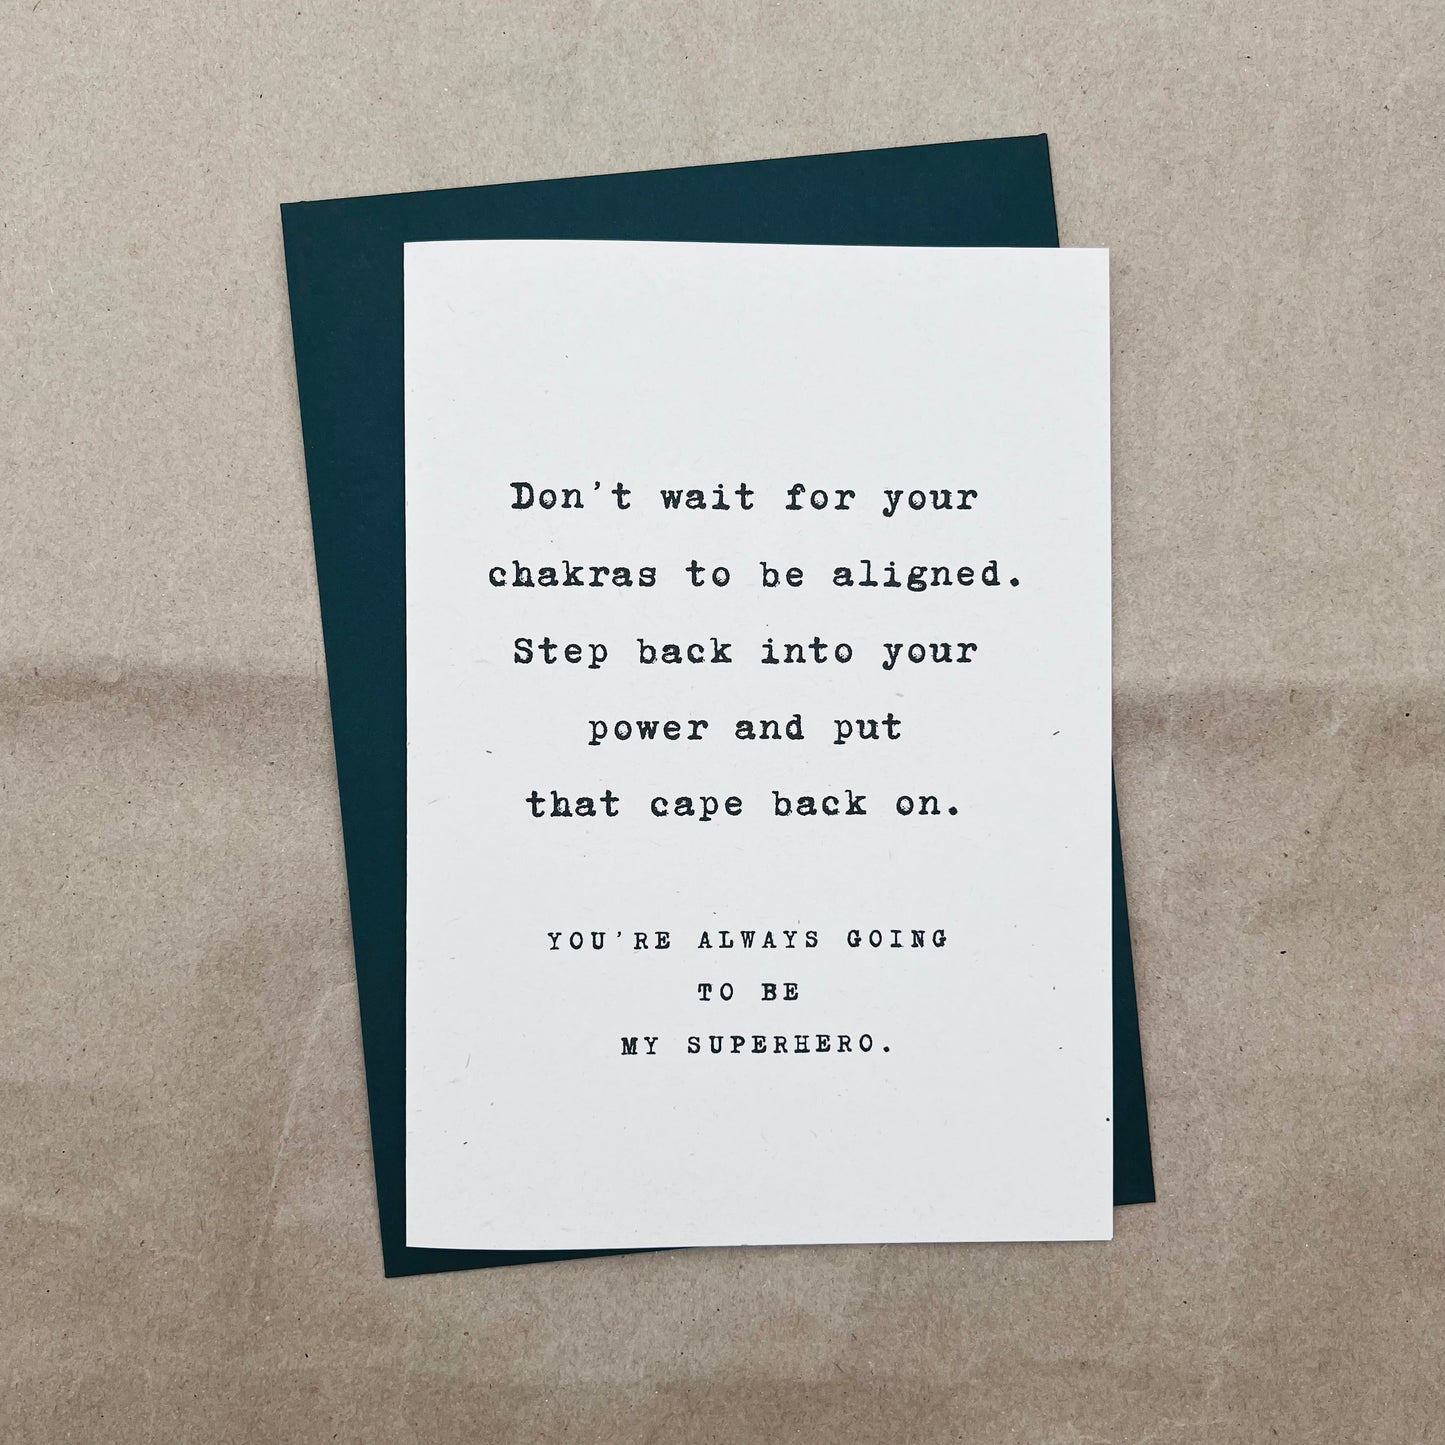 Don't wait for your
chakras to be aligned.
Step back into your
power and put
that cape back on.
YOU'RE ALWAYS GOING
TO BE
MY SUPERHERO.